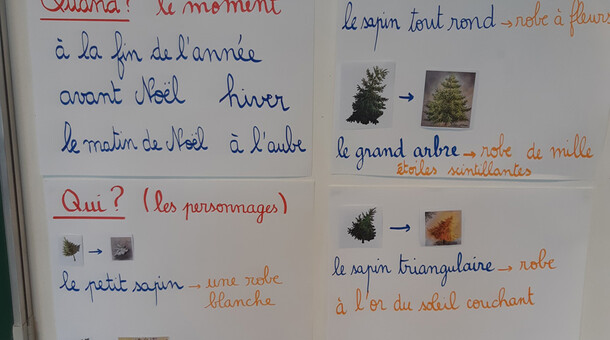 Quand? le moment
à la fin de l'année
avant Noël hiver
le matin de Noël à l'aube
Qui? (les personnages)
le petit sapin → une robe
blanche
le sapin tout rond → robe à fleurs
le grand arbre → robe de mille
étoiles scintillantes
le sapin triangulaire → robe
à l'or du soleil couchant